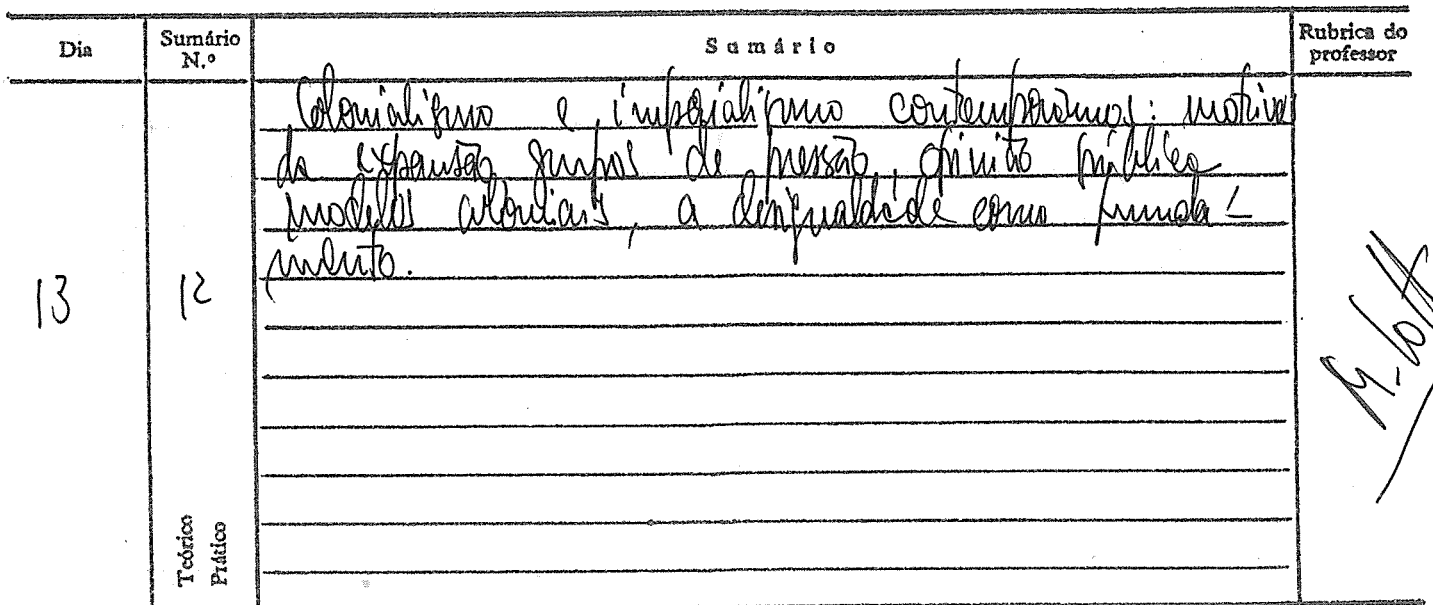 Dia
Sumário N.º
Sumário
Rubrica do professor
Colonialismo e imperialismo contemporâneos: motivos
da expansão, grupos de pressão, opinião pública
modelos coloniais, a desigualdade como funda-
mento.
13
12
Teórico
Prático